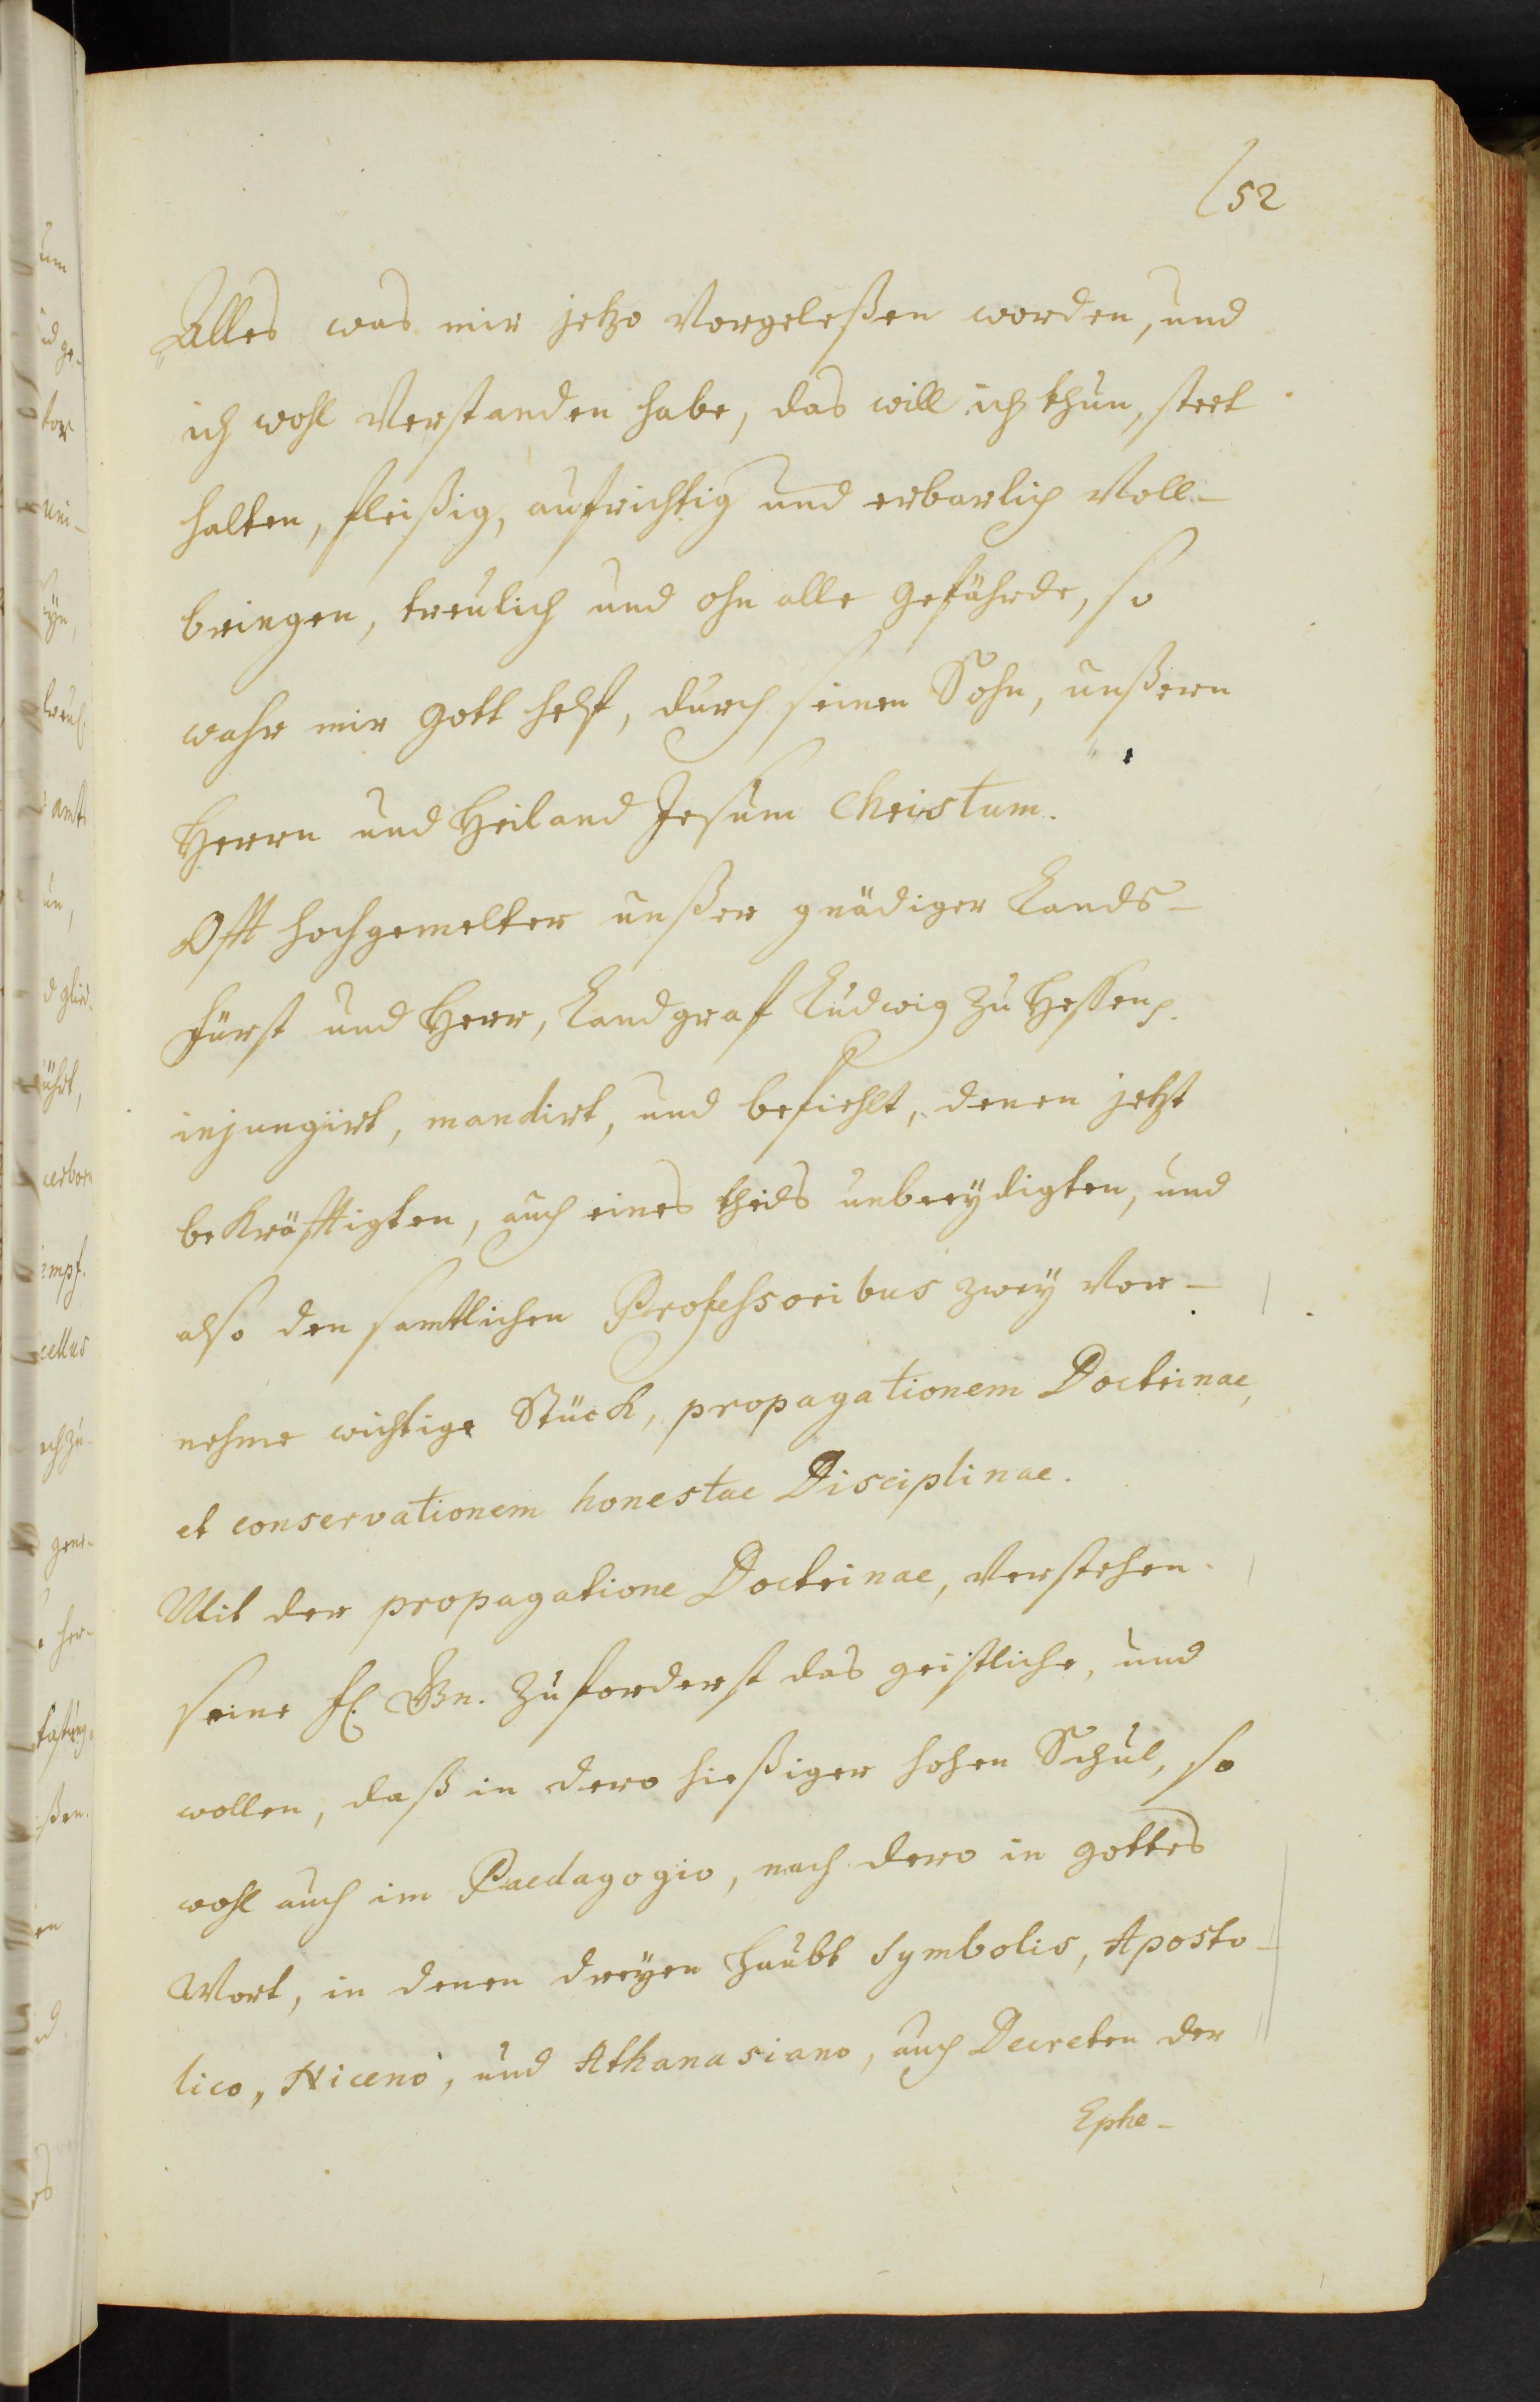 52
Alles was mir jetzo vorgeleßen worden, und
ich wohl verstanden habe, das will ich thun, steet
halten, fleißig, aufrichtig und erbarlich voll-
bringen, treulich und ohn alle gefährde, so
wahr mir Gott helf, durch seinen Sohn, unßern
Herrn und Heiland Jesum Christum.
Offt hochgemelter unßer gnädiger Lands-
Fürst und Herr, Landgraf Ludwig zu Hessen p.
injungirt, mandirt, und befiehlt, denen jetzt
bekräfftigten, auch eines theils unbeeÿdigten, und
also den samtlichen Professoribus zweÿ vor-
nehme wichtige Stück, propagationem Doctrinae,
et conservationem honestae Disciplinae.
Mit der propagatione Doctrinae, verstehen
seine fl. Gn. zuforderst das geistliche, und
wollen, daß in dero hießiger hohen Schul, so
wohl auch im Paedagogio, nach dero in Gottes
Wort, in denen dreÿen Haubt Symbolis, Aposto-
lico, Niceno, und Athanasiano, auch Decreten der
Ephe-